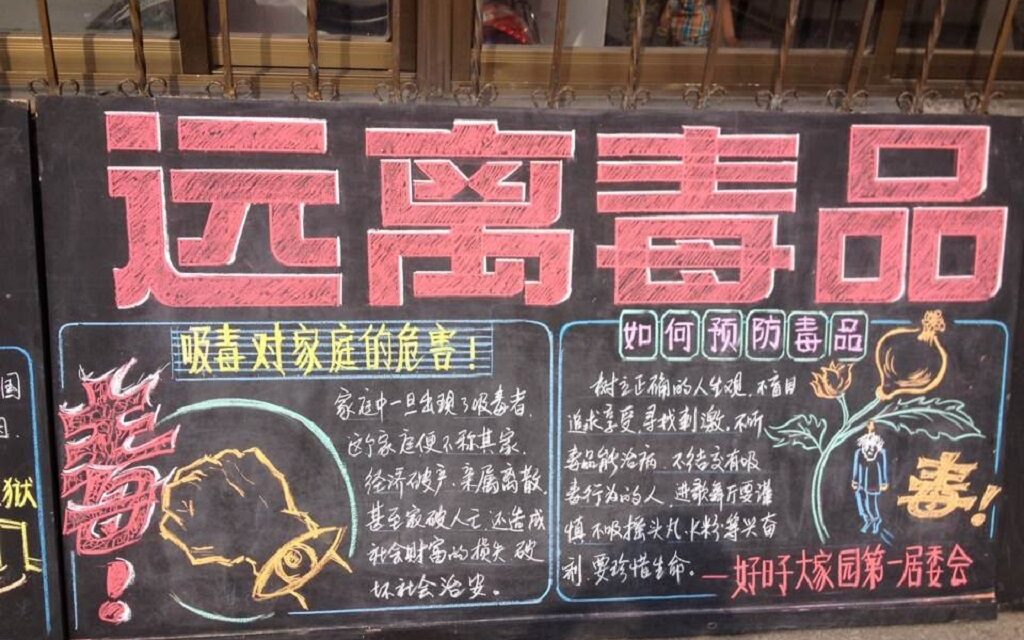 远离毒品
国
狱
毒！
吸毒对家庭的危害！
家庭中一旦出现了吸毒者.
这个家庭便不称其家.
经济破产.亲属离散.
甚至家破人亡.还造成
社会财富的损失.破
坏社会治安。
如何预防毒品
树立正确的人生观.不盲目
追求享受.寻找刺激.不听
毒品能治病.不结交有吸
毒行为的人.进歌舞厅要谨
慎.不吸摇头丸.K粉等兴奋
剂.要珍惜生命。
毒！
一好时大家园第一居委会